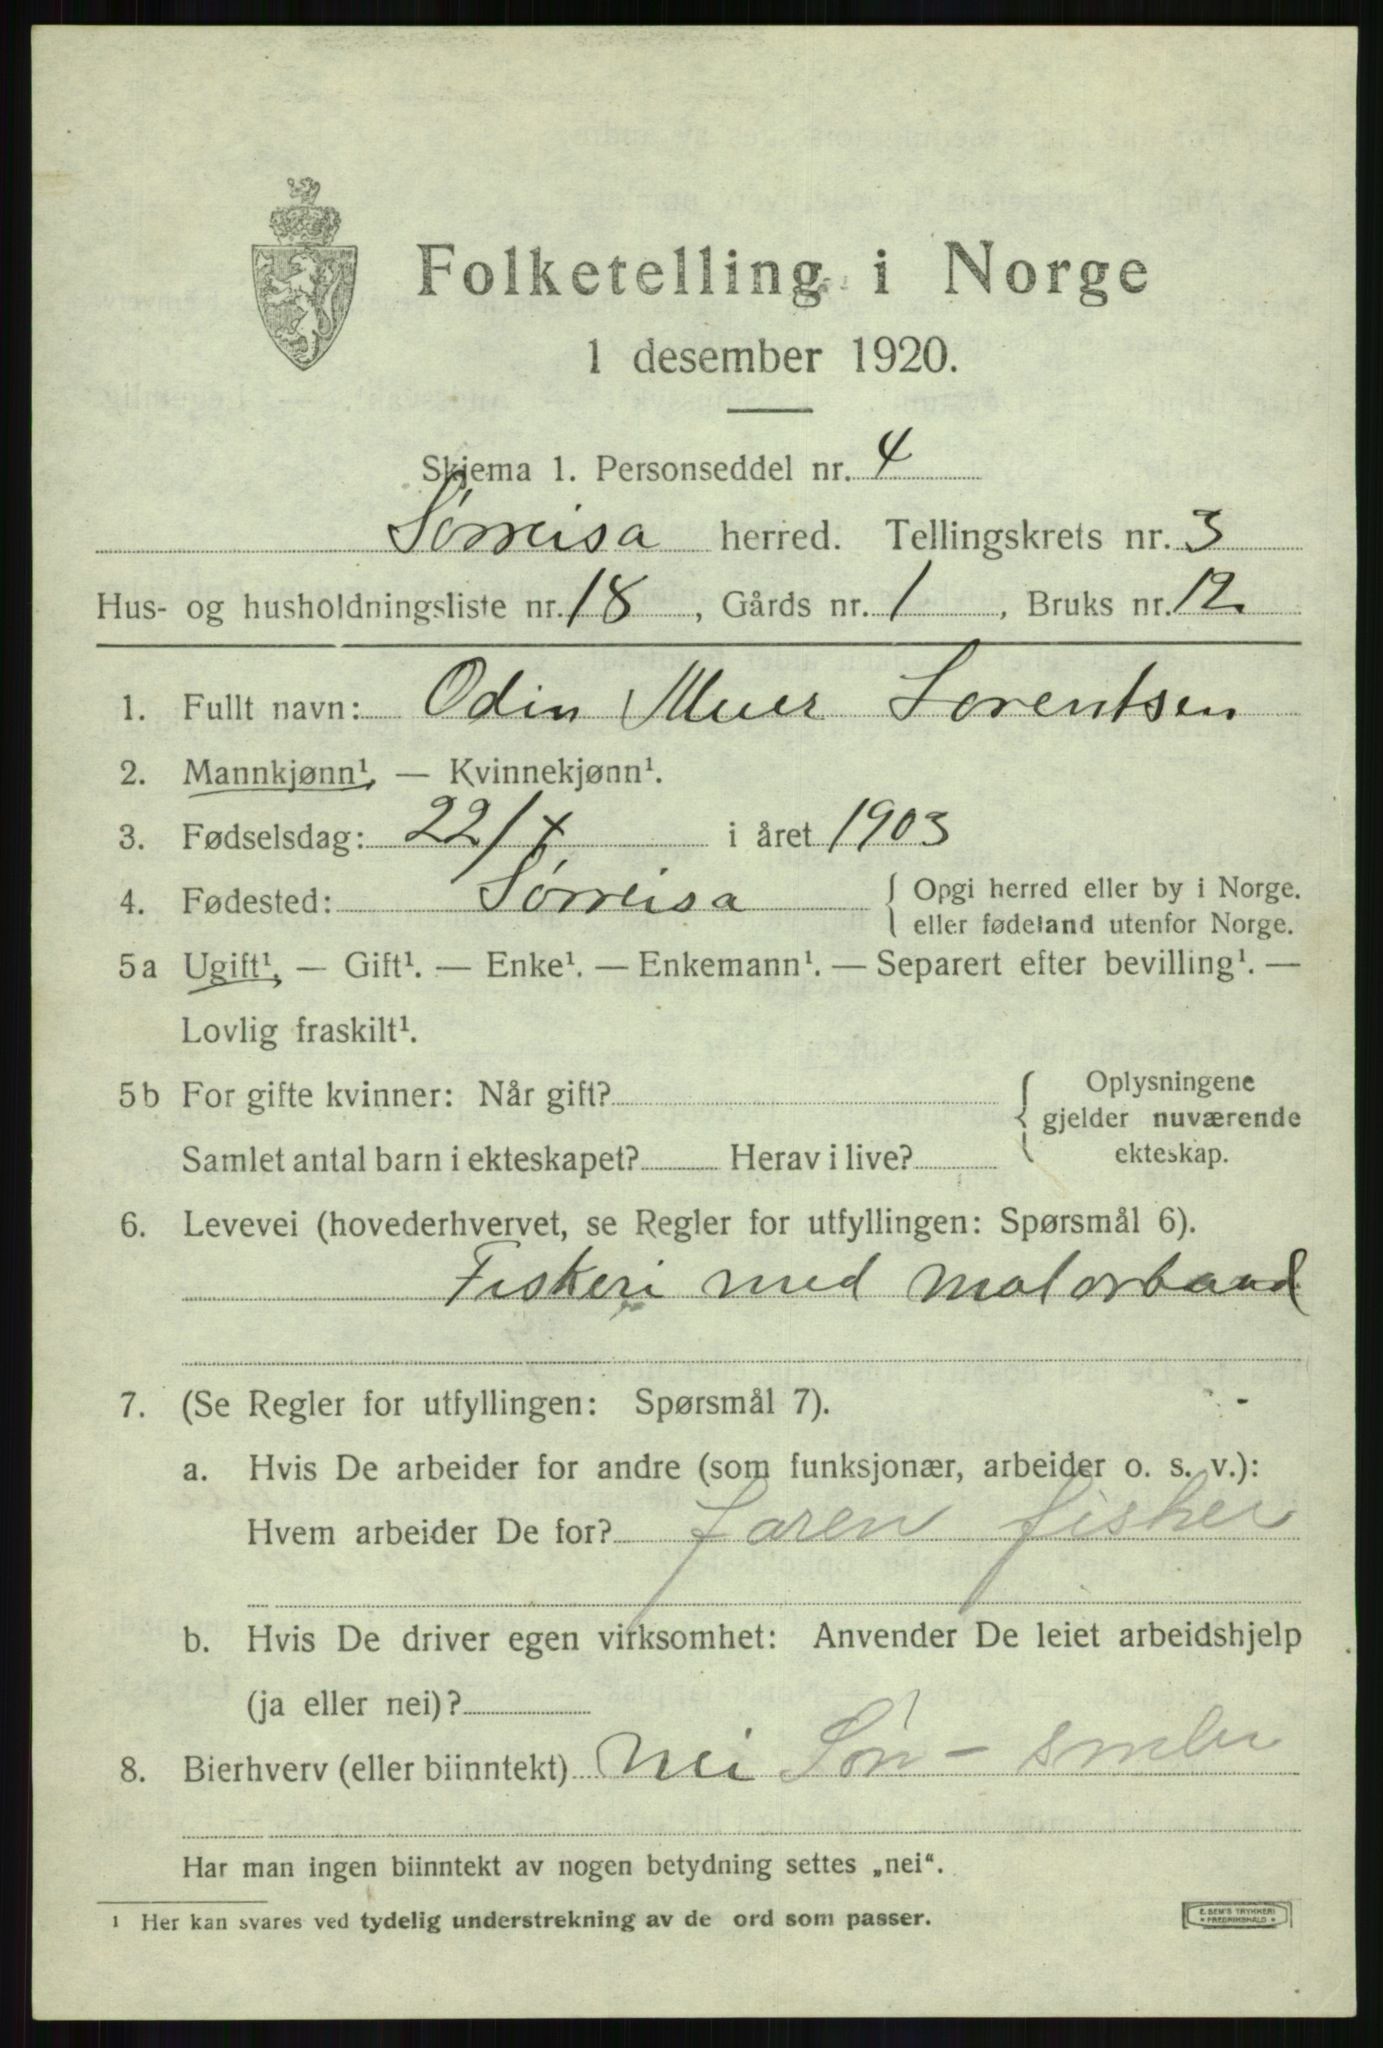 Folketelling i Norge
1 desember 1920.
Skjema 1. Personseddel nr. 4
Sørreisa herred. Tellingskrets nr. 3
Hus- og husholdningsliste nr. 18, Gårds nr. 1, Bruks nr. 12
1. Fullt navn: Odin Lorentsen
2. Mannkjønn¹, — Kvinnekjønn¹.
3. Fødselsdag: 22/x i året 1903
4. Fødested: Sørreisa { Opgi herred eller by i Norge.
eller fødeland utenfor Norge.
5a Ugift¹, — Gift¹. — Enke¹. — Enkemann¹. — Separert efter bevilling¹. —
Lovlig fraskilt¹.
5b For gifte kvinner: Når gift? { Oplysningene
gjelder nuværende
Samlet antal barn i ekteskapet? Herav i live? ekteskap.
6. Levevei (hovederhvervet, se Regler for utfyllingen: Spørsmål 6).
Fiskeri med motorbaad
7. (Se Regler for utfyllingen: Spørsmål 7).
a. Hvis De arbeider for andre (som funksjonær, arbeider o. s. v.):
Hvem arbeider De for? faren fisker
b. Hvis De driver egen virksomhet: Anvender De leiet arbeidshjelp
(ja eller nei)?
8. Bierhverv (eller biinntekt) Nei Søn -
Har man ingen biinntekt av nogen betydning settes „nei“.
¹ Her kan svares ved tydelig understrekning av de ord som passer.
E. SEM'S TRYKKERI
FREDRIKSHALD